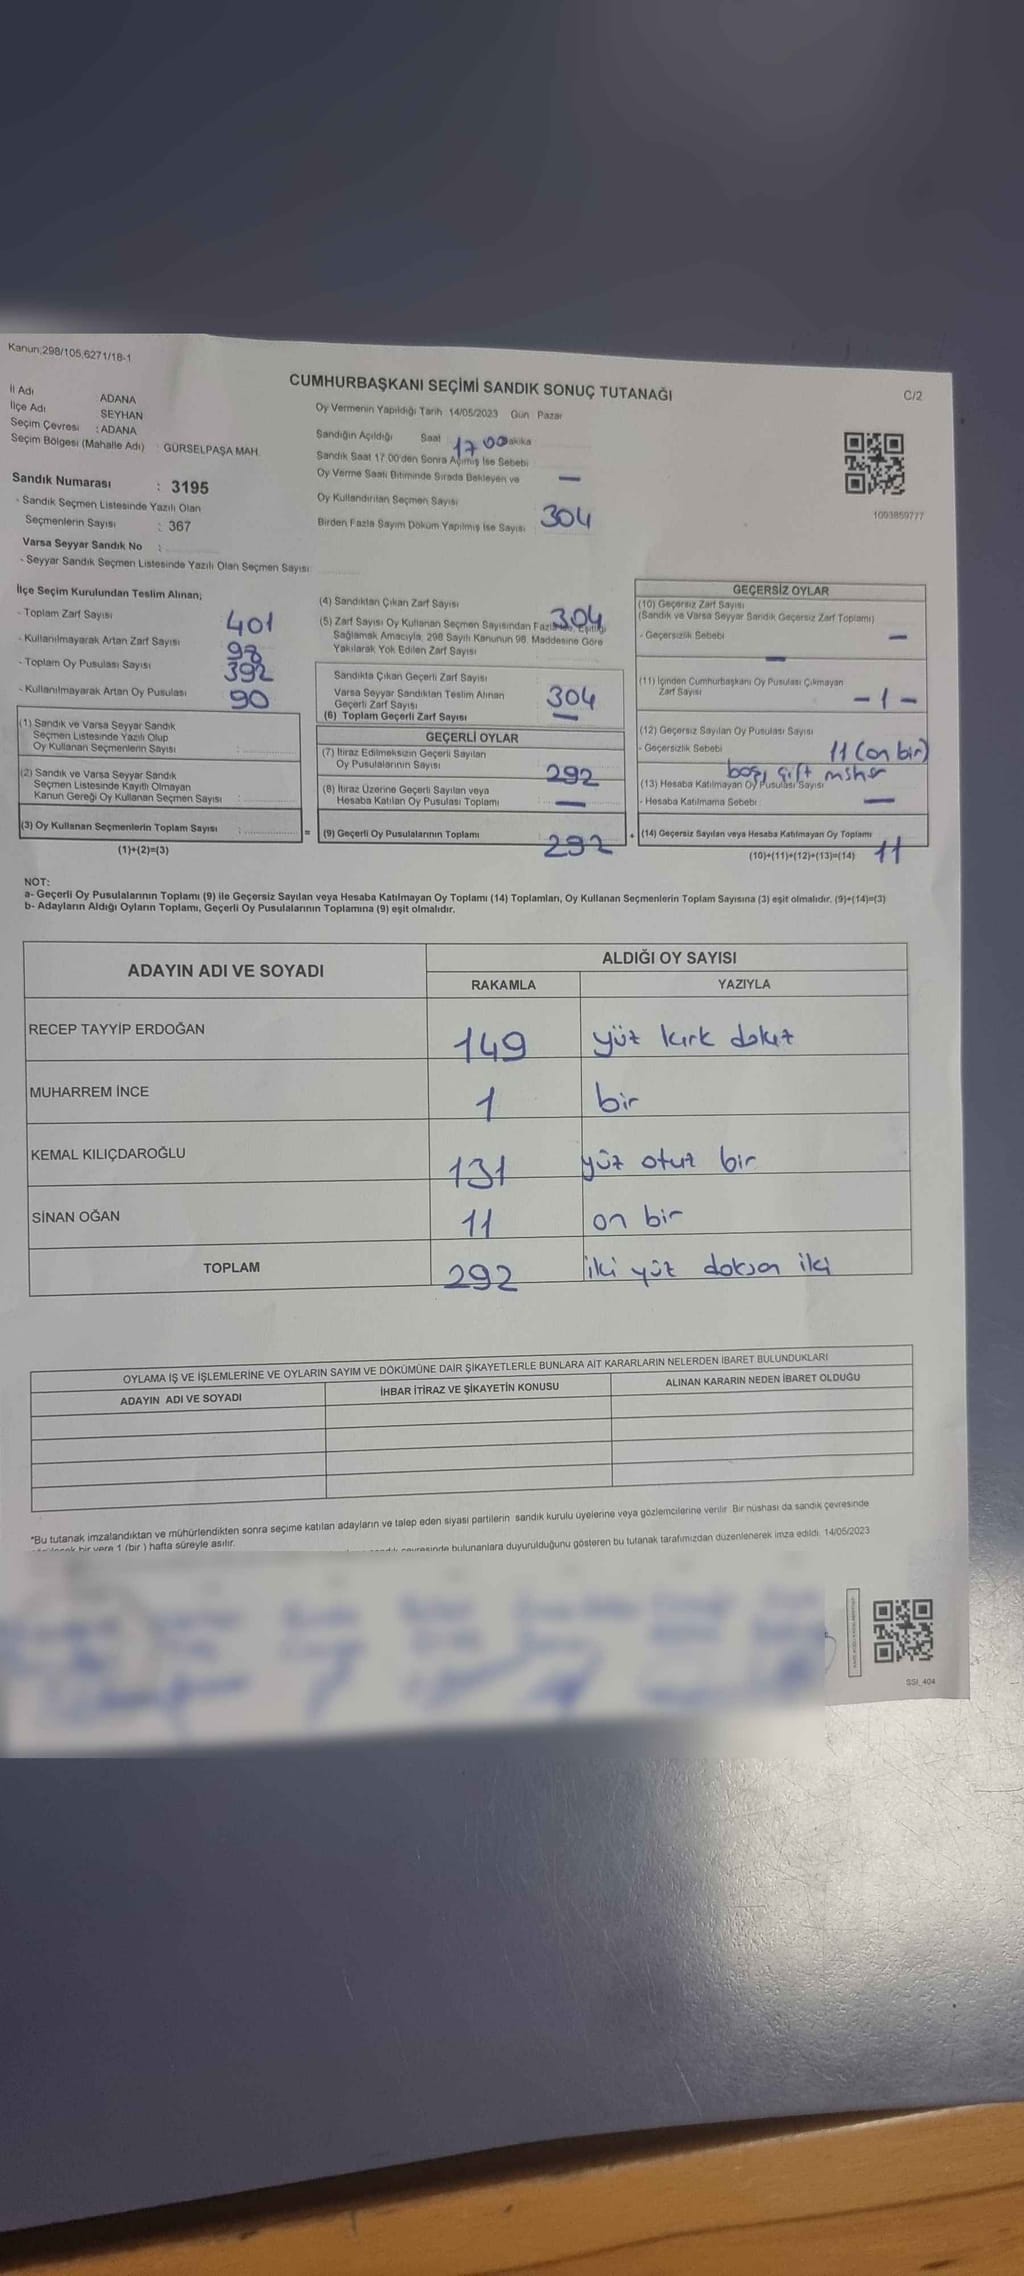 Kanun;298/105,6271/18-1
CUMHURBAŞKANI SEÇİMİ SANDIK SONUÇ TUTANAĞI
C/2
İl Adı ADANA
İlçe Adı SEYHAN
Seçim Çevresi : ADANA
Seçim Bölgesi (Mahalle Adı) : GÜRSELPAŞA MAH.
Sandık Numarası : 3195
- Sandık Seçmen Listesinde Yazılı Olan
Seçmenlerin Sayısı : 367
Varsa Seyyar Sandık No :
- Seyyar Sandık Seçmen Listesinde Yazılı Olan Seçmen Sayısı
Oy Vermenin Yapıldığı Tarih 14/05/2023 Gün Pazar
Sandığın Açıldığı Saat 17 00 Dakika
Sandık Saat 17:00'den Sonra Açılmış İse Sebebi
Oy Verme Saati Bitiminde Sırada Bekleyen ve —
Oy Kullandırılan Seçmen Sayısı
Birden Fazla Sayım Döküm Yapılmış İse Sayısı 304
1093859777
İlçe Seçim Kurulundan Teslim Alınan;
- Toplam Zarf Sayısı 401
- Kullanılmayarak Artan Zarf Sayısı
- Toplam Oy Pusulası Sayısı 392
- Kullanılmayarak Artan Oy Pusulası 90
(1) Sandık ve Varsa Seyyar Sandık
Seçmen Listesinde Yazılı Olup
Oy Kullanan Seçmenlerin Sayısı :
(2) Sandık ve Varsa Seyyar Sandık
Seçmen Listesinde Kayıtlı Olmayan
Kanun Gereği Oy Kullanan Seçmen Sayısı :
(3) Oy Kullanan Seçmenlerin Toplam Sayısı : =
(1)+(2)=(3)
(4) Sandıktan Çıkan Zarf Sayısı 304
(5) Zarf Sayısı Oy Kullanan Seçmen Sayısından Fazla İse, Eşitliği
Sağlamak Amacıyla, 298 Sayılı Kanunun 98. Maddesine Göre
Yakılarak Yok Edilen Zarf Sayısı
Sandıkta Çıkan Geçerli Zarf Sayısı
Varsa Seyyar Sandıktan Teslim Alınan 304
Geçerli Zarf Sayısı
(6) Toplam Geçerli Zarf Sayısı —
GEÇERLİ OYLAR
(7) İtiraz Edilmeksizin Geçerli Sayılan
Oy Pusulalarının Sayısı 292
(8) İtiraz Üzerine Geçerli Sayılan veya
Hesaba Katılan Oy Pusulası Toplamı —
(9) Geçerli Oy Pusulalarının Toplamı : 292 +
GEÇERSİZ OYLAR
(10) Geçersiz Zarf Sayısı
(Sandık ve Varsa Seyyar Sandık Geçersiz Zarf Toplamı)
- Geçersizlik Sebebi —
—
(11) İçinden Cumhurbaşkanı Oy Pusulası Çıkmayan
Zarf Sayısı - 1 -
(12) Geçersiz Sayılan Oy Pusulası Sayısı
- Geçersizlik Sebebi 11 (on bir)
boş, çift mühür
(13) Hesaba Katılmayan Oy Pusulası Sayısı
- Hesaba Katılmama Sebebi : —
(14) Geçersiz Sayılan veya Hesaba Katılmayan Oy Toplamı
(10)+(11)+(12)+(13)=(14) 11
NOT:
a- Geçerli Oy Pusulalarının Toplamı (9) ile Geçersiz Sayılan veya Hesaba Katılmayan Oy Toplamı (14) Toplamları, Oy Kullanan Seçmenlerin Toplam Sayısına (3) eşit olmalıdır. (9)+(14)=(3)
b- Adayların Aldığı Oyların Toplamı, Geçerli Oy Pusulalarının Toplamına (9) eşit olmalıdır.
ADAYIN ADI VE SOYADI ALDIĞI OY SAYISI
RAKAMLA YAZIYLA
RECEP TAYYİP ERDOĞAN 149 yüz kırk dokuz
MUHARREM İNCE 1 bir
KEMAL KILIÇDAROĞLU 131 yüz otuz bir
SİNAN OĞAN 11 on bir
TOPLAM 292 iki yüz doksan iki
OYLAMA İŞ VE İŞLEMLERİNE VE OYLARIN SAYIM VE DÖKÜMÜNE DAİR ŞİKAYETLERLE BUNLARA AİT KARARLARIN NELERDEN İBARET BULUNDUKLARI
ADAYIN ADI VE SOYADI İHBAR İTİRAZ VE ŞİKAYETİN KONUSU ALINAN KARARIN NEDEN İBARET OLDUĞU
*Bu tutanak imzalandıktan ve mühürlendikten sonra seçime katılan adayların ve talep eden siyasi partilerin sandık kurulu üyelerine veya gözlemcilerine verilir. Bir nüshası da sandık çevresinde
bir yere 1 (bir ) hafta süreyle asılır.
bulunanlara duyurulduğunu gösteren bu tutanak tarafımızdan düzenlenerek imza edildi. 14/05/2023
SSI_404